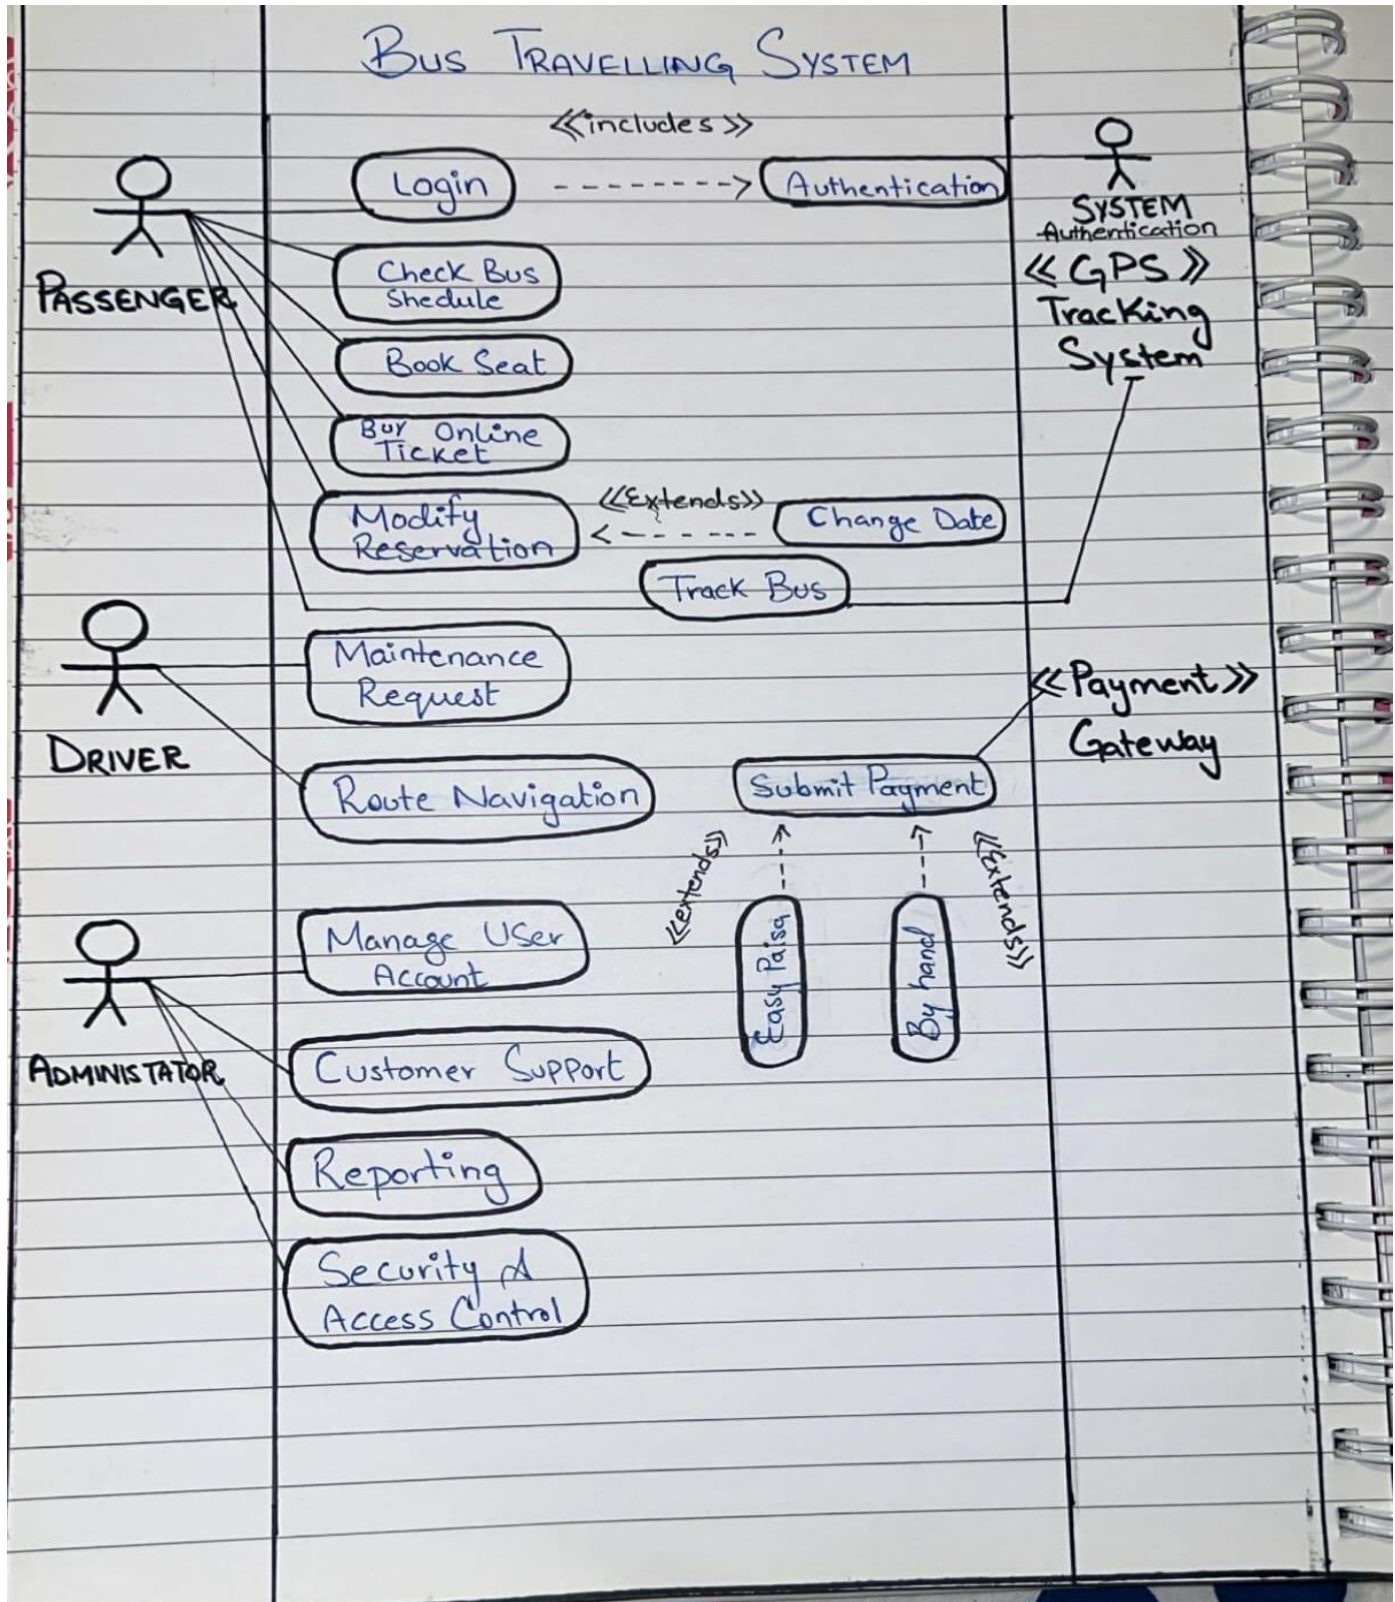 BUS TRAVELLING SYSTEM
<<includes>>
Login
Authentication
SYSTEM
Authentication
PASSENGER
Check Bus
Shedule
<<GPS>>
Tracking
System
Book Seat
Buy Online
Ticket
Modify
Reservation
<<Extends>>
Change Date
Track Bus
DRIVER
Maintenance
Request
Route Navigation
<<Payment>>
Gateway
Submit Payment
<<extends>>
<<Extends>>
Easy Paisa
By hand
ADMINISTATOR
Manage User
Account
Customer Support
Reporting
Security &
Access Control